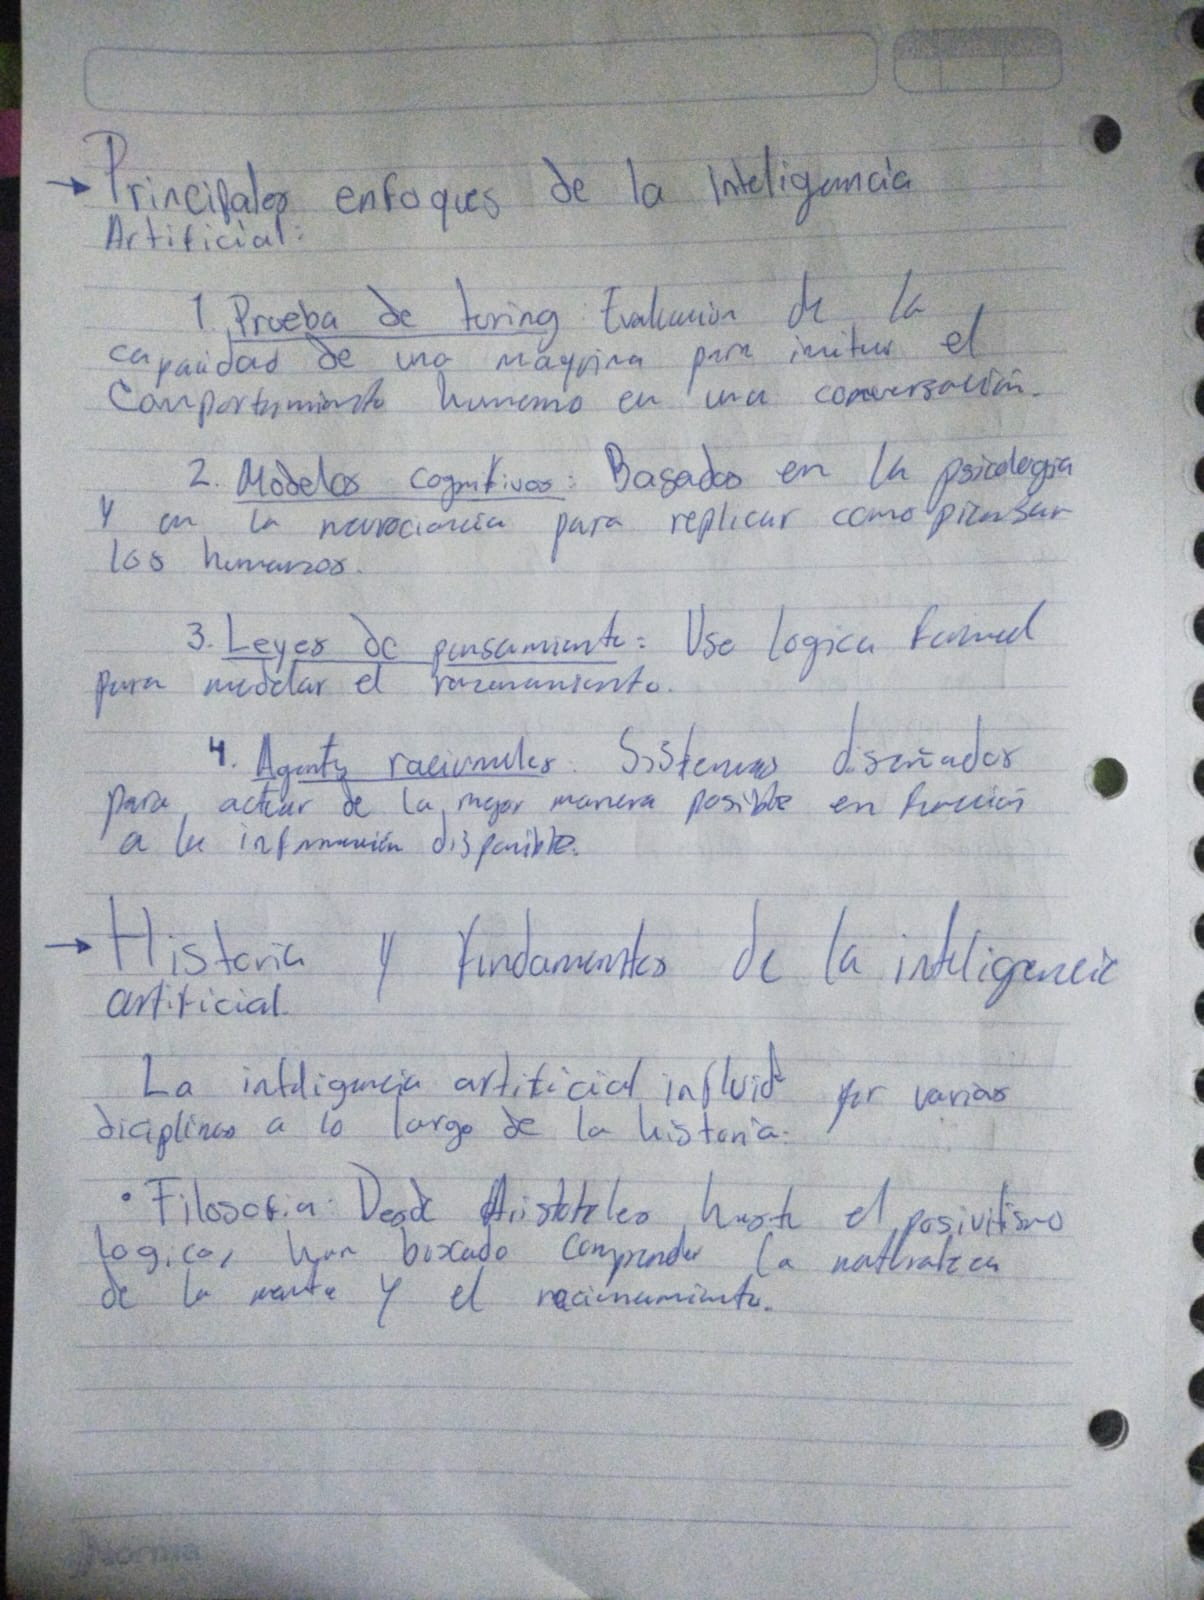 → Principales enfoques de la Inteligencia
Artificial:
1. Prueba de turing: Evaluación de la
capacidad de una maquina para imitar el
Comportamiento humano en una conversación.
2. Modelos cognitivos: Basados en la psicologia
Y en la neurociencia para replicar como piensan
los humanos.
3. Leyes de pensamiento: Uso logica formal
para modelar el razonamiento.
4. Agentes racionales: Sistemas diseñados
para actuar de la mejor manera posible en función
a la información disponible.
→ Historia y fundamentos de la inteligencia
artificial.
La inteligencia artificial influida por varias
diciplinas a lo largo de la historia.
• Filosofia: Desde Aristoteles hasta el posivitismo
logico, han buscado comprender la naturaleza
de la mente y el racionamiento.
Norma